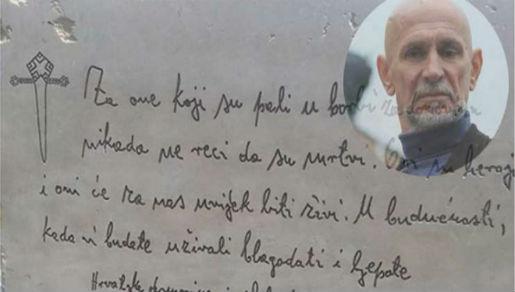 Za one koji su pali u borbi za
nikada ne reci da su mrtvi. Oni su heroji
i oni će za nas uvijek biti živi. U budućnosti,
kada vi budete uživali blagodati i ljepote
Hrvatske